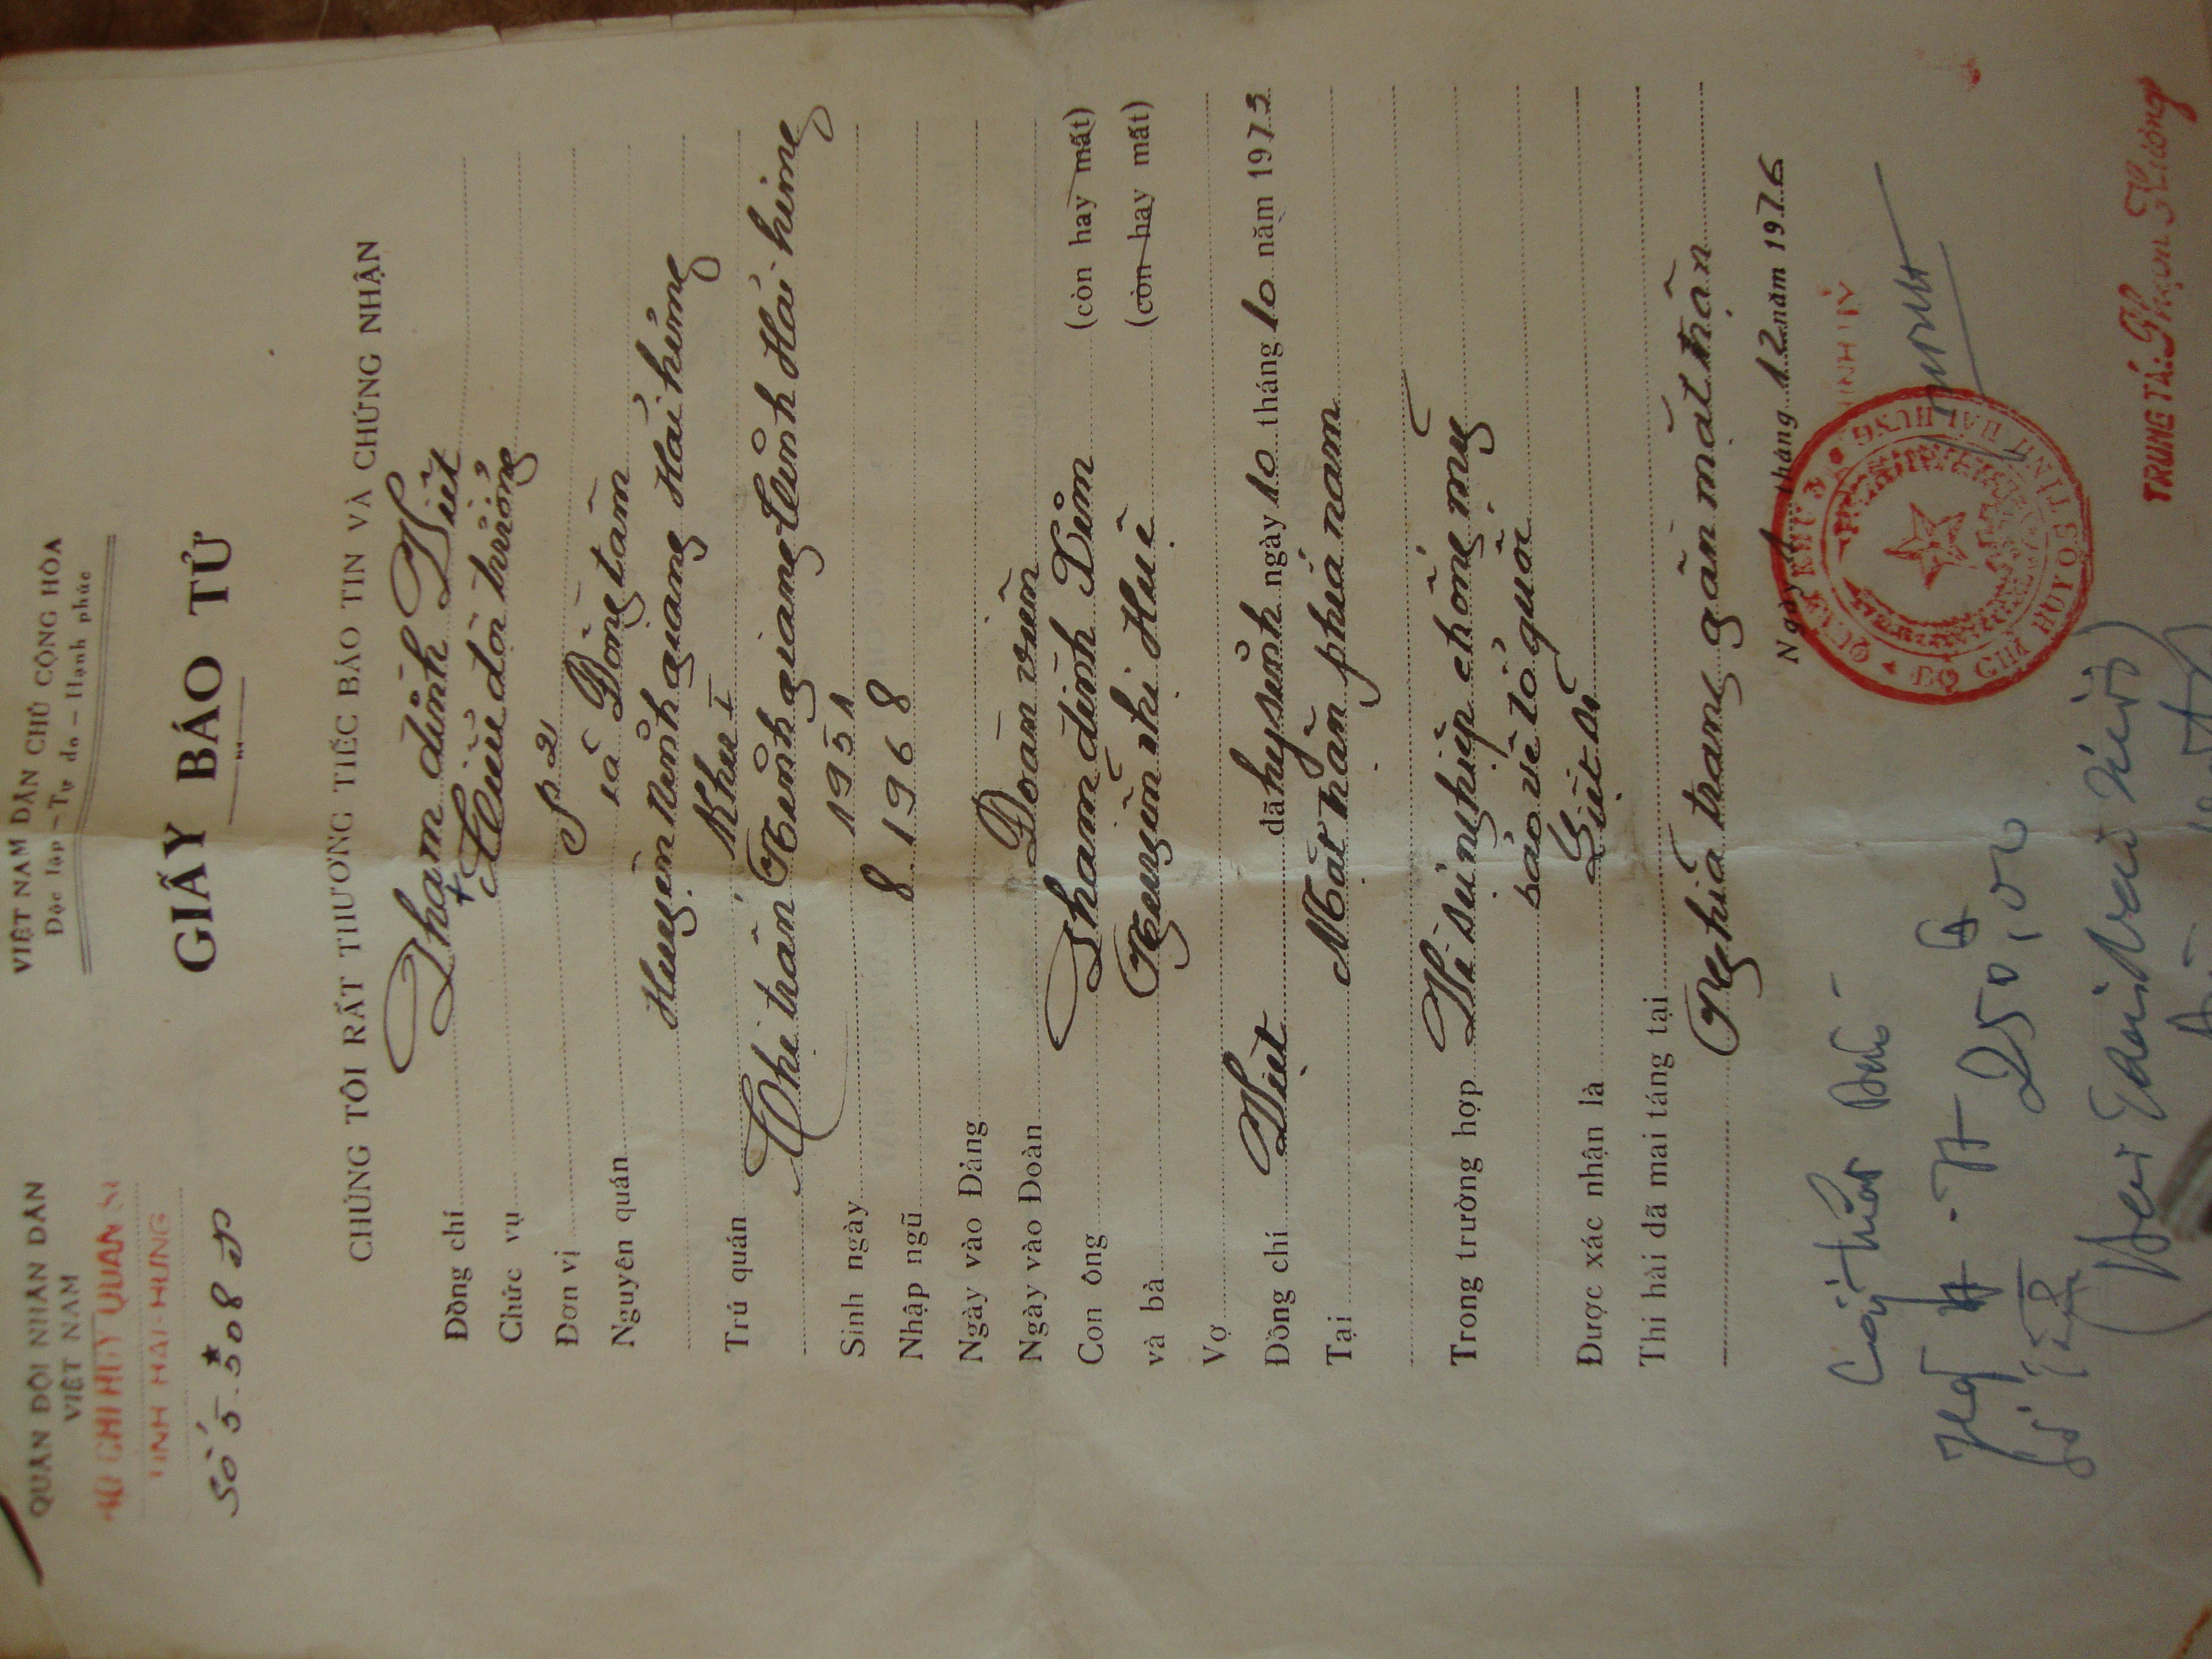 QUÂN ĐỘI NHÂN DÂN
VIỆT NAM
BỘ CHỈ HUY QUÂN SỰ
TỈNH HẢI-HƯNG
Số 5.508
VIỆT NAM DÂN CHỦ CỘNG HÒA
Độc lập - Tự do - Hạnh phúc
GIẤY BÁO TỬ
CHÚNG TÔI RẤT THƯƠNG TIẾC BÁO TIN VÀ CHỨNG NHẬN
Đồng chí Phạm đình Việt
Chức vụ Tiểu đội trưởng
Đơn vị P2
Nguyên quán xã Đồng tâm
Huyện Ninh giang Hải hưng
Trú quán Khu I
Thị trấn Ninh giang tỉnh Hải hưng
Sinh ngày 1951
Nhập ngũ 8.1968
Ngày vào Đảng
Ngày vào Đoàn Đoàn viên
Con ông Phạm đình (còn hay mất)
và bà Nguyễn thị Huê (còn hay mất)
Vợ
Đồng chí Việt đã hy sinh ngày 10 tháng 10 năm 1973
Tại Mặt trận phía nam
Trong trường hợp Vì sự nghiệp chống mỹ
bảo vệ tổ quốc
Được xác nhận là Liệt sĩ
Thi hài đã mai táng tại
Nghĩa trang gần mặt trận
Ngày tháng 12 năm 1976
QUÂN KHU 3
BỘ CHỈ HUY QS TỈNH HẢI HƯNG
TRUNG TÁ:
250,00